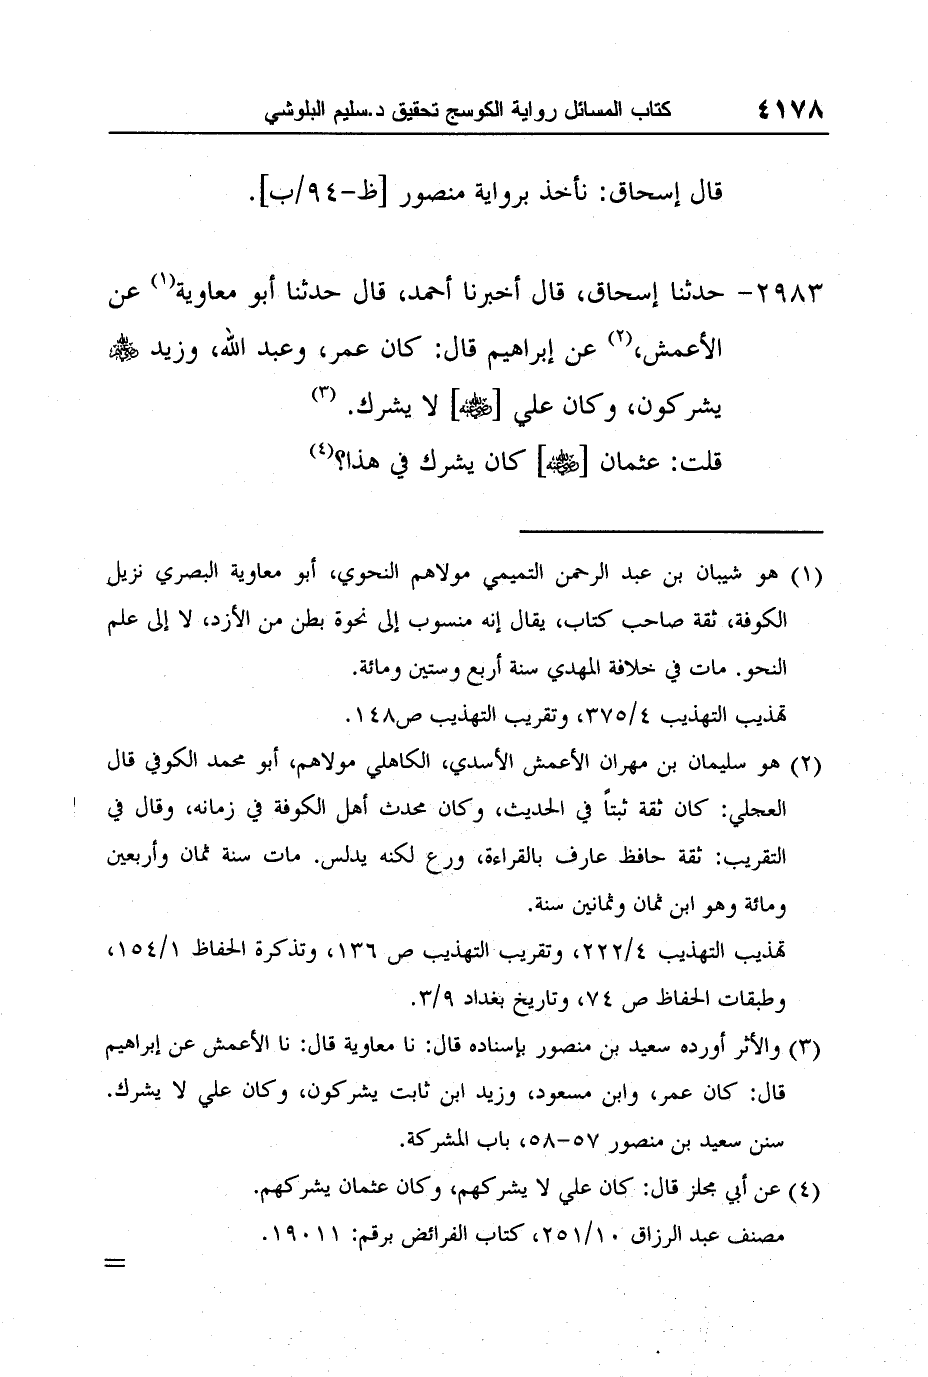 ٤١٧٨ كتاب المسائل رواية الكوسج تحقيق د.سليم البلوشي
قال إسحاق: نأخذ برواية منصور [ظ-٩٤/ب].
٢٩٨٣- حدثنا إسحاق، قال أخبرنا أحمد، قال حدثنا أبو معاوية(١) عن
الأعمش،(٢) عن إبراهيم قال: كان عمر، وعبد الله، وزيد ﷺ
يشركون، وكان علي [ﷺ] لا يشرك. (٣)
قلت: عثمان [ﷺ] كان يشرك في هذا؟(٤)
(١) هو شيبان بن عبد الرحمن التميمي مولاهم النحوي، أبو معاوية البصري نزيل
الكوفة، ثقة صاحب كتاب، يقال إنه منسوب إلى نحوة بطن من الأزد، لا إلى علم
النحو. مات في خلافة المهدي سنة أربع وستين ومائة.
تهذيب التهذيب ٣٧٥/٤، وتقريب التهذيب ص١٤٨.
(٢) هو سليمان بن مهران الأعمش الأسدي، الكاهلي مولاهم، أبو محمد الكوفي قال
العجلي: كان ثقة ثبتاً في الحديث، وكان محدث أهل الكوفة في زمانه، وقال في
التقريب: ثقة حافظ عارف بالقراءة، ورع لكنه يدلس. مات سنة ثمان وأربعين
ومائة وهو ابن ثمان وثمانين سنة.
تهذيب التهذيب ٢٢٢/٤، وتقريب التهذيب ص ١٣٦، وتذكرة الحفاظ ١٥٤/١،
وطبقات الحفاظ ص ٧٤، وتاريخ بغداد ٣/٩.
(٣) والأثر أورده سعيد بن منصور بإسناده قال: نا معاوية قال: نا الأعمش عن إبراهيم
قال: كان عمر، وابن مسعود، وزيد ابن ثابت يشركون، وكان علي لا يشرك.
سنن سعيد بن منصور ٥٧-٥٨، باب المشركة.
(٤) عن أبي مجلز قال: كان علي لا يشركهم، وكان عثمان يشركهم.
مصنف عبد الرزاق ٢٥١/١٠، كتاب الفرائض برقم: ١٩٠١١.
=